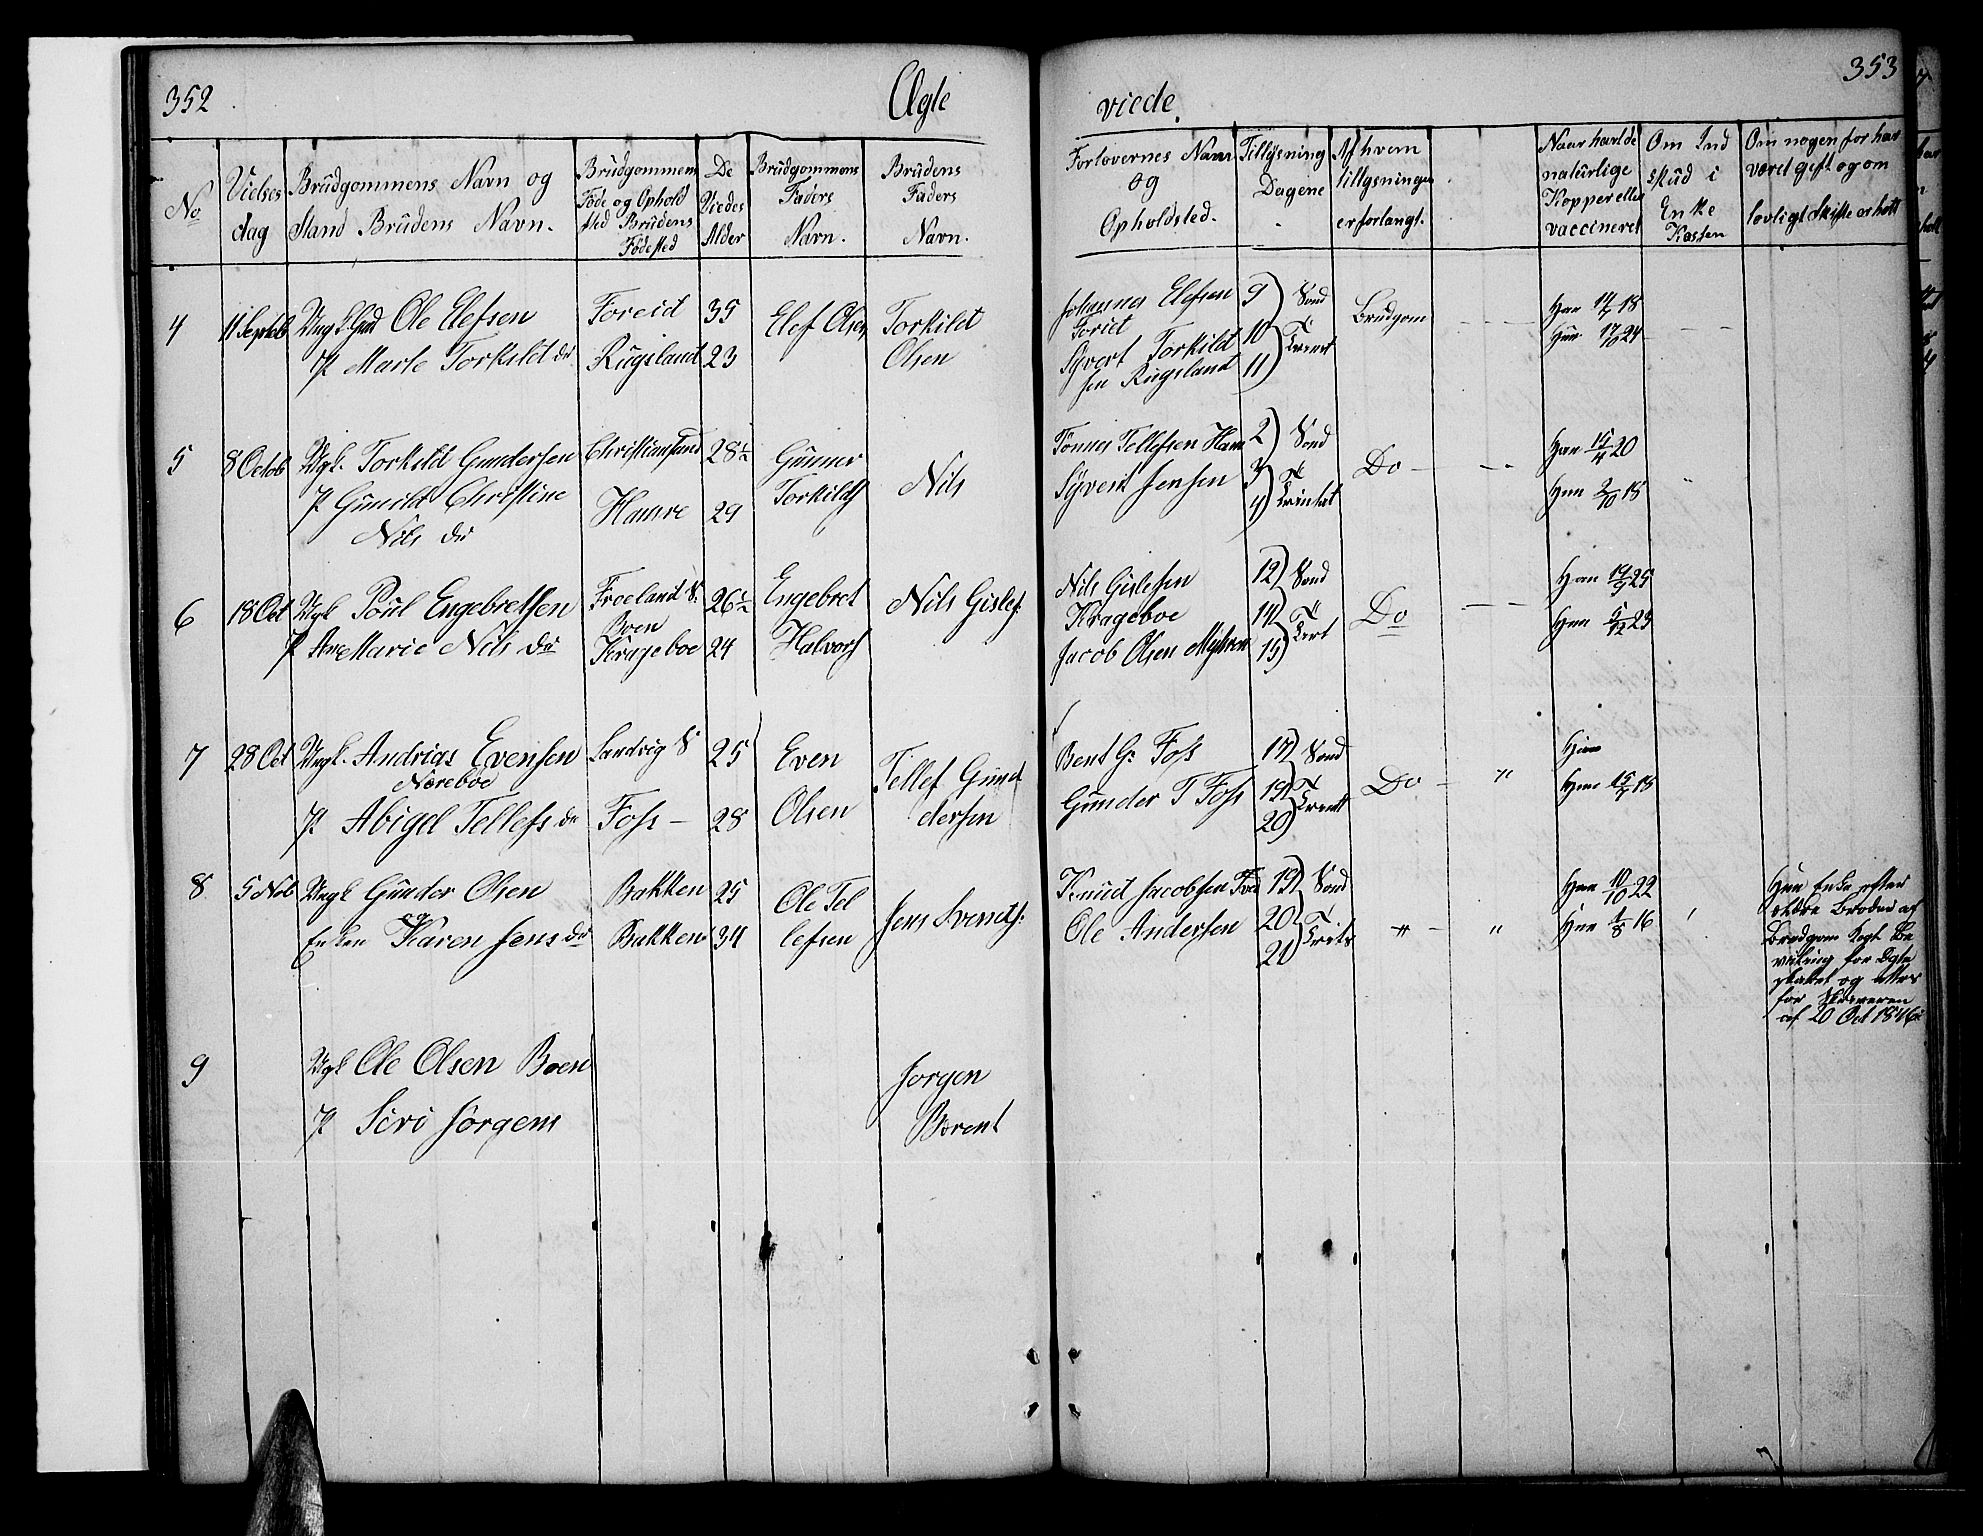 352
Ægte
viede.
353
No
Vielses
dag
Brudgommens Navn og
Stand Brudens Navn.
Brudgommens
Føde og Ophold
sted Brudens
Fødested
De
Viedes
Alder
Brudgommens
Faders
Navn.
Brudens
Faders
Navn.
Forlovernes Navn
og
Opholdsted.
Tillysning
Dagene
Af hvem
tillysningen
er forlangt.
Naar havt de
natürlige
Kopper eller
vaccineret
Om Ind
skud i
Enke
Kassen
Om nogen før har
været gift og om
lovligt Skifte er holt
4
11 Septb
Ungk Ole Elefsen
P Marte Torkildt dr
Foreid
Rugsland
35
23
Elef Olsen
Torkildt
Olsen
Johannes Elefsen
Forid
Syvert Torkild
sen Rugsland
9
10
11
Sønd
Trinit
Brudgom
Han 14/7 18
Hun 17/10 24
5
8 Octob
Ugk. Torkild Gundersen
P Gunild Christine
Nils dr
Christiansand
Hamre
28 1/2
29
Gunner
Torkilds
Nils
Tønnes Tellefsen Ham
Syvert Jensen
2
3
4
Sønd
Trinitat
Do
Han 15/4 20
Hun 2/10 18
6
18 Oct
Ungk Poul Engebretsen
P Ane Marie Nils dr
Froeland S.
Boen
Krageboe
26 1/2
24
Engebret
Halvors
Nils Gislef
Nils Gislesen
Krageboe
Jacob Olsen Myhren
12
14
15
Sønd
Trt
Do
Han 14/9 25
Hun 5/12 23
7
28 Oct
Ungk. Andrias Evensen
Næreboe
P Abigel Tellefs dr
Sandvig S
Foss
25
28
Even
Olsen
Tellef Gund
dersen
Bent Gs Foss
Gunder T Foss
17
19
20
Sønd
Trinitt
Do
Han
Hun 15/7 18
8
5 Nob
Ungk Gunder Olsen
Enken Karen Jens dr
Bakken
Bakken
25
34
Ole Tel
lefsen
Jens Svends
Knud Jacobsen
Ole Andersen
19
20
21
Sønd
Trits
Han 10/10 22
Hun 1/8 16
Hun Enke efter
ældre Broder af
Brudgom Kgl Be
vilning for Ægte
skabet
for
af 20 Oct 1846
9
Ugk Ole Olsen Boen
P Siri Jørgens
Jørgen
Berent